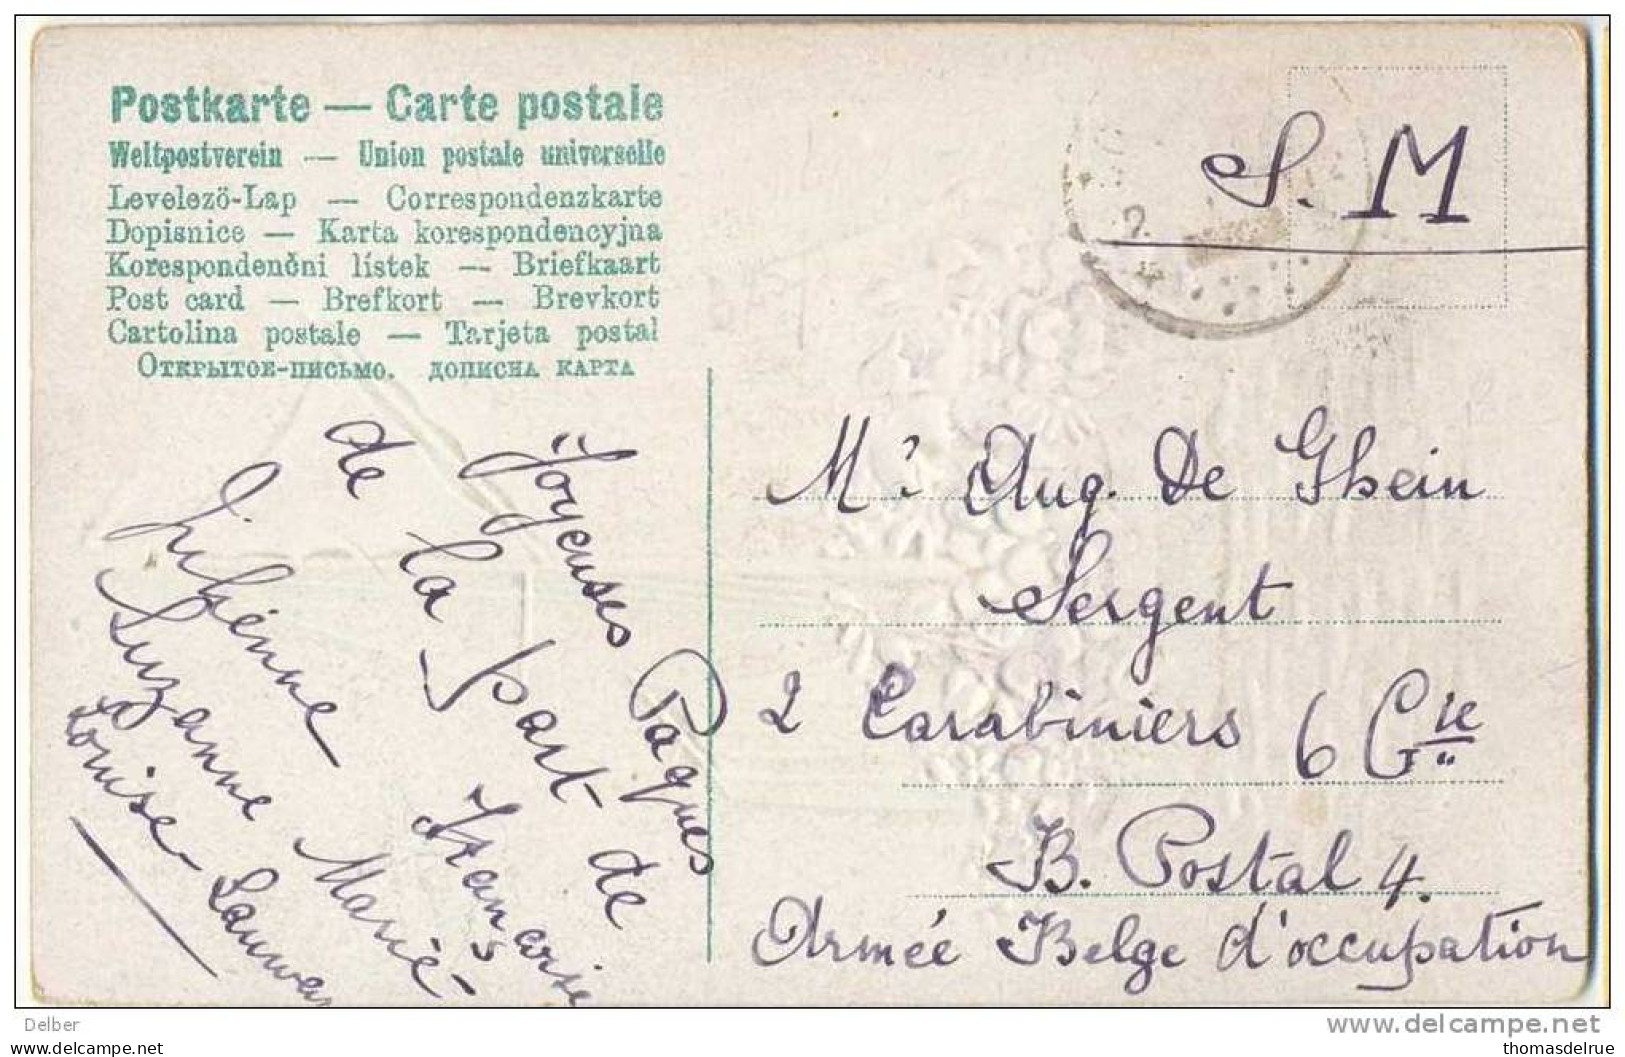 Postkarte — Carte postale
Weltpostverein — Union postale universelle
Levelező-Lap — Correspondenzkarte
Dopisnice — Karta korespondencyjna
Korespondenčni lístek — Briefkaart
Post card — Brefkort — Brevkort
Cartolina postale — Tarjeta postal
Открытое-письмо. дописна карта
S. M
Joyeuses Paques
de la part de
Julienne Françoise
Suzanne Marie-
Louise
Mr Aug. De Ghein
Sergent
2 Carabiniers 6 Cie
B. Postal 4.
Armée Belge d'occupation
Delber
www.delcampe.net
thomasdelrue